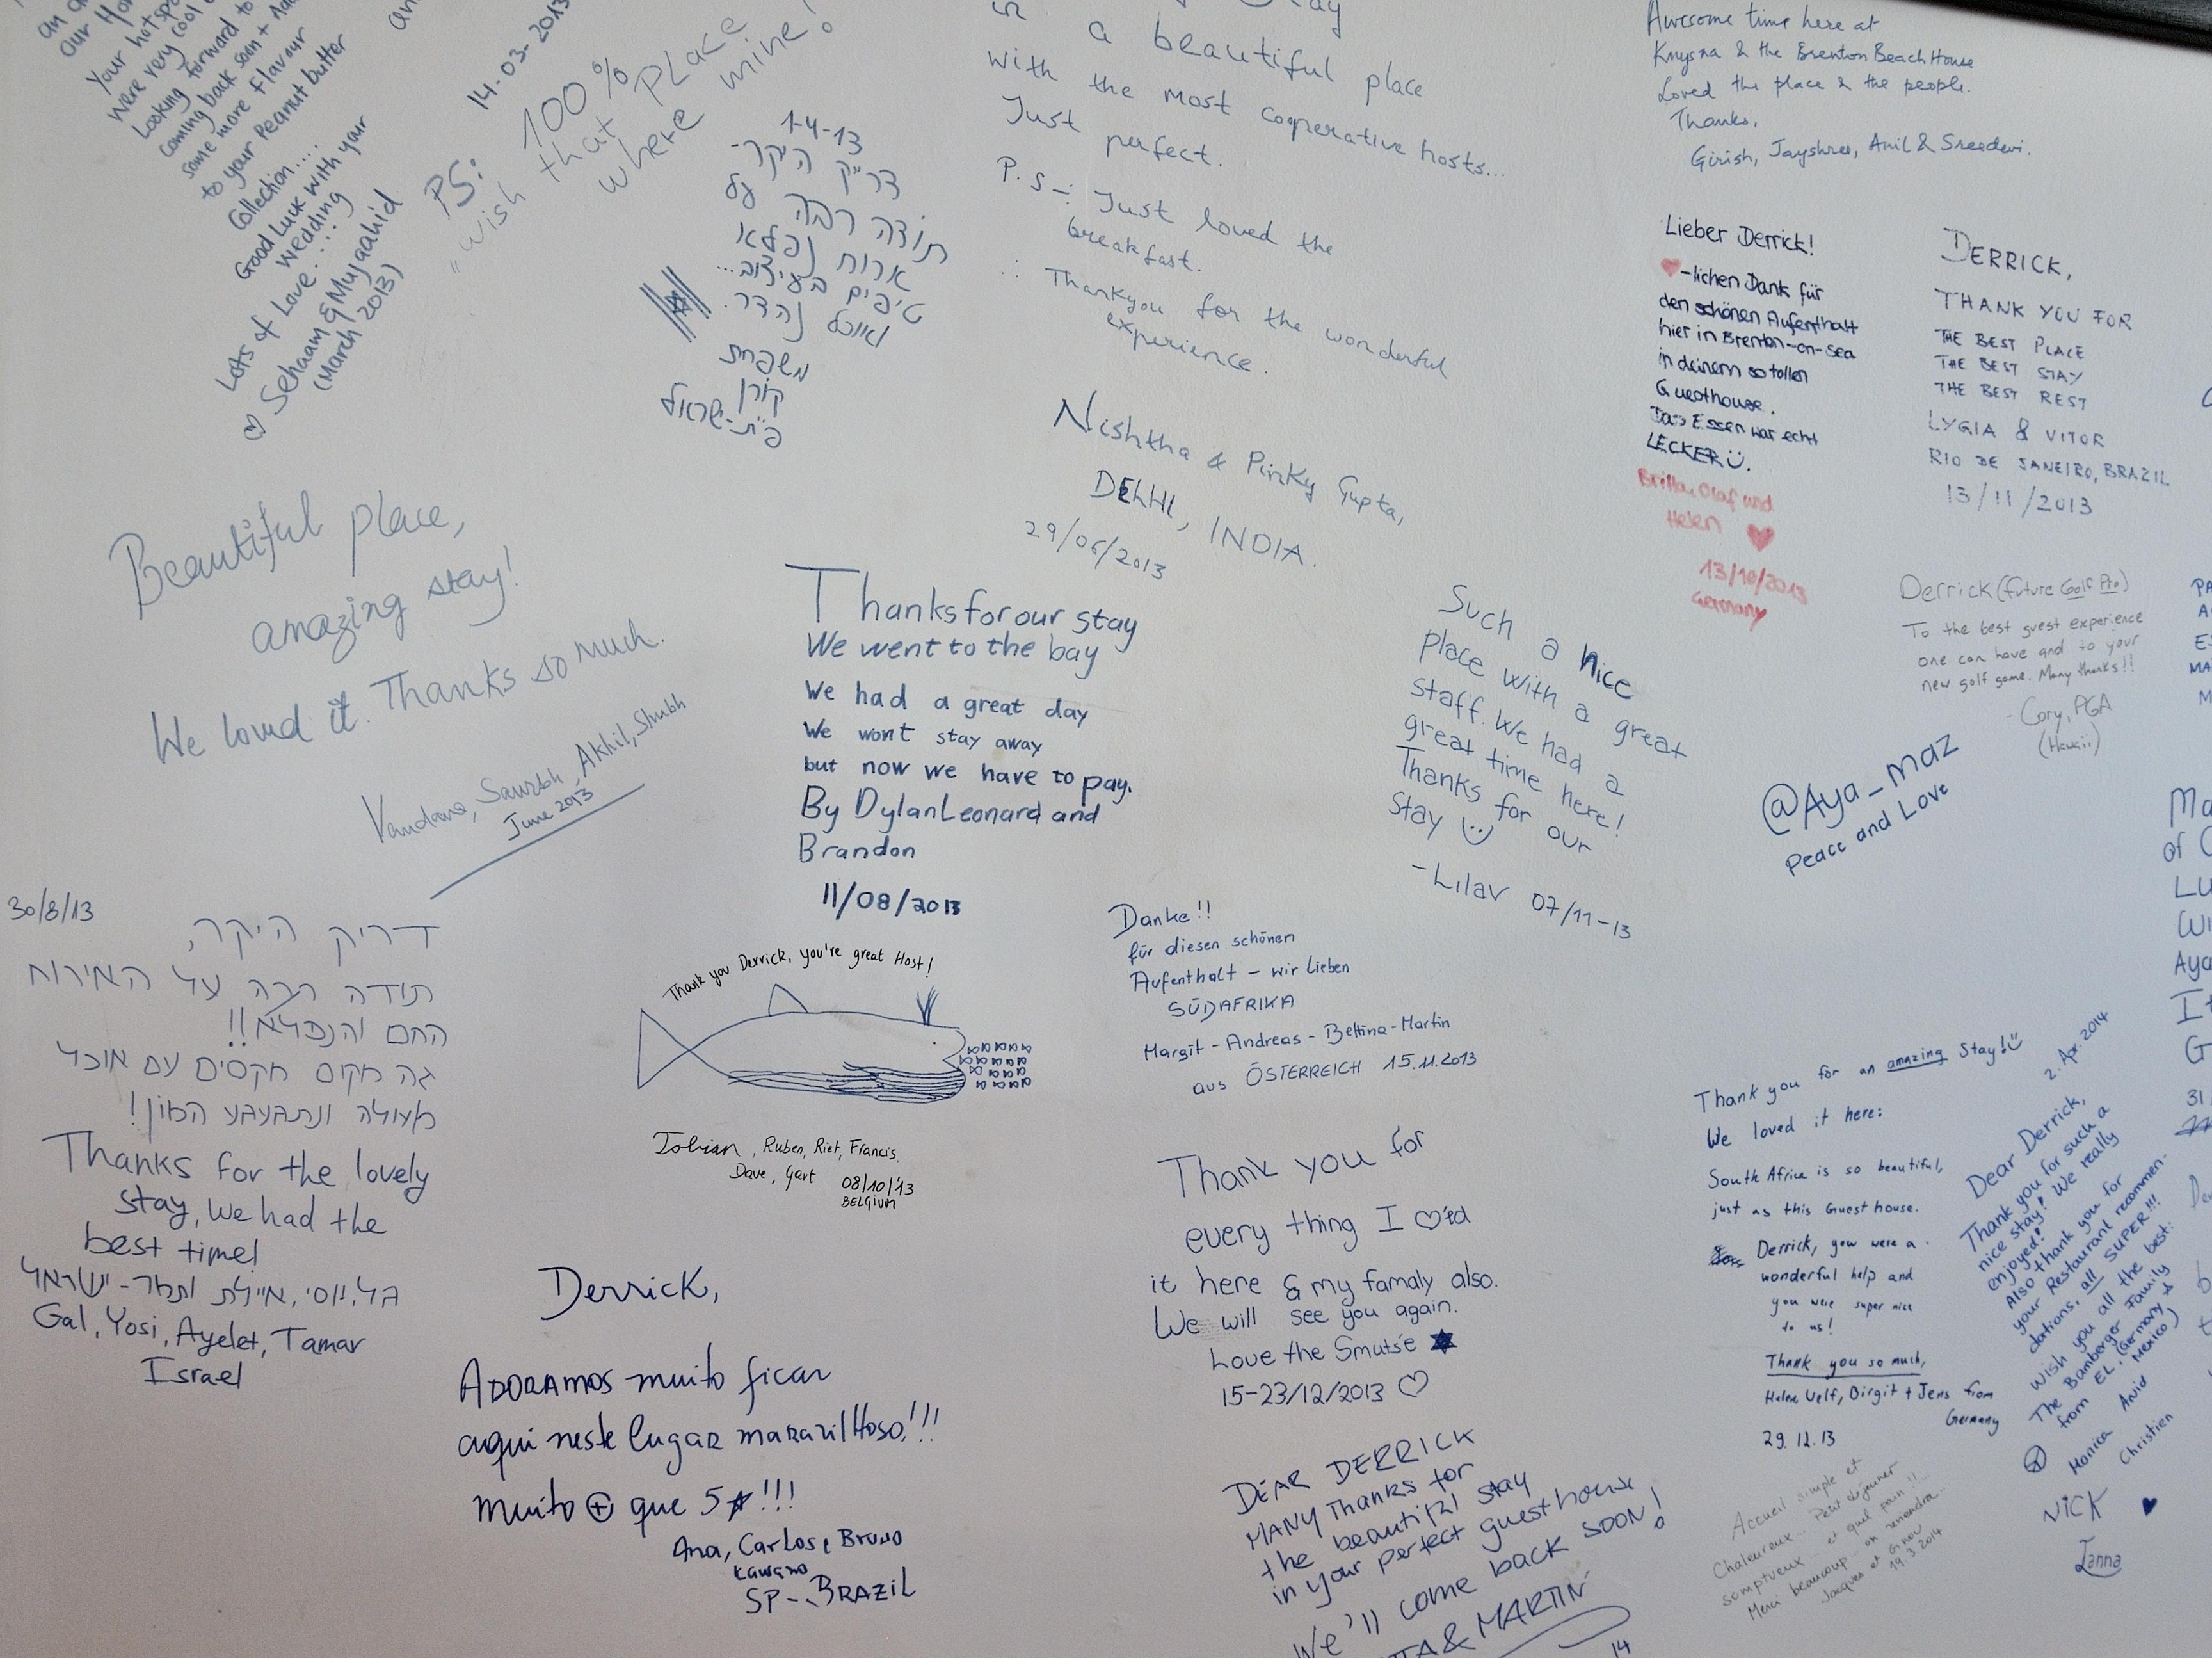 our
Your hotspo
were very cool
Looking forward to
coming back soon +
some more flavour
to your Peanut butter
Collection....
Good Luck with your
wedding
Lots of Love...
Sehaam & Mujaahid
(March 2013)
14-03-2013
PS: 100% place
"wish that
where mine!
1-4-13
דריק היקר-
תודה רבה על
ארוח נפלא
טיפים בעיצוב...
ואוכל נהדר.
משפחת
קורן
פ"ת-ישראל
in
a beautiful place
with the most cooperative hosts...
Just perfect.
P.S-: Just loved the
breakfast.
Thankyou for the wonderful
experience.
Nishtha & Pinky Gupta,
DELHI, INDIA.
29/06/2013
Awesome time here at
Knysna & the Brenton Beach House
Loved the place & the people.
Thanks,
Girish, Jayshree, Anil & Sreedevi.
Lieber Derrick!
♥-lichen Dank für
den schönen Aufenthalt
hier in Brenton-on-Sea
in deinem so tollen
Guesthouse.
Das Essen war echt
LECKER Ü.
Britta, Olaf und
Helen ♥
13/10/2013
Germany
DERRICK,
THANK YOU FOR
THE BEST PLACE
THE BEST STAY
THE BEST REST
LYGIA & VITOR
RIO DE JANEIRO, BRAZIL
13/11/2013
Derrick (future Golf Pro)
To the best guest experience
one can have and to your
new golf game. Many thanks!!
- Cory, PGA
(Hawaii)
@Aya_maz
Peace and Love
Beautiful place,
amazing stay!
We loved it. Thanks so much.
Vandana, Saurbh, Akhil, Shubh
June 2013
Thanks for our stay
We went to the bay
We had a great day
We wont stay away
but now we have to pay.
By Dylan Leonard and
Brandon
11/08/2013
Such a nice
place with a great
staff. We had a
great time here!
Thanks for our
stay :)
-Lilav 07/11-13
30/8/13
דריק היקר,
תודה רבה על האירוח
החם והנפלא!!
היה מקום מקסים עם אוכל
מעולה ונתגעגע המון!
Thanks for the lovely
stay, we had the
best time!
גל, יוסי, איילת ותמר - ישראל
Gal, Yosi, Ayelet, Tamar
Israel
Thank you Derrick, you're great Host!
Tobian, Ruben, Riet, Francis,
Dave, Gert 08/10/'13
BELGIUM
Danke!!
für diesen schönen
Aufenthalt - wir lieben
SÜDAFRIKA
Margit - Andreas - Bettina - Martin
aus ÖSTERREICH 15.11.2013
Thank you for
every thing I ♡'ed
it here & my famaly also.
We will see you again.
Love the Smutse ✡
15-23/12/2013 ♡
Derrick,
ADORAMOS muito ficar
aqui neste lugar maravilhoso!!!
muito ⊕ que 5★!!!
Ana, Carlos e Bruno
Kawano
SP - BRAZIL
DEAR DERRICK
MANY Thanks for
the beautiful stay
in your perfect guesthouse
We'll come back SOON!
& MARTIN
14
Thank you for an amazing stay!
We loved it here:
South Africa is so beautiful,
just as this Guesthouse.
Derrick, you were a
wonderful help and
you were super nice
to us!
Thank you so much,
Helen, Ulf, Birgit + Jens from
Germany
29.12.13
2. Apr. 2014
Dear Derrick,
Thank you for such a
nice stay! We really
enjoyed!
Also thank you for
your Restaurant recommen-
dations, all SUPER!!!
Wish you all the best.
The Bamberger Family
from EL, (Germany +
Mexico)
Monica Arid
Christien
NICK ♥
Janna
Accueil simple et
Chaleureux... Petit déjeuner
somptueux... et quel pain!!
Merci beaucoup... on reviendra...
Jacques et Ginou
19.3.2014
Ma
of
LU
Wi
Aya
It
G
31